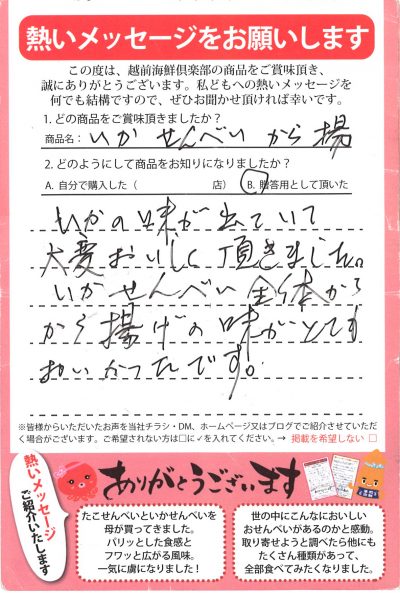 熱いメッセージをお願いします
この度は、越前海鮮倶楽部の商品をご賞味頂き、
誠にありがとうございます。私どもへの熱いメッセージを
何でも結構ですので、ぜひお聞かせ頂ければ幸いです。
1. どの商品をご賞味頂きましたか?
商品名: いかせんべい から揚
2. どのようにして商品をお知りになりましたか?
A. 自分で購入した ( 店) B. 贈答用として頂いた
いかの味が出ていて
大変おいしく頂きました。
いかせんべい全体から
から揚げの味がとても
おいかったです。
※皆様からいただいたお声を当社チラシ・DM、ホームページ又はブログでご紹介させていただ
く場合がございます。ご希望されない方は□に✓を入れてください。→ 掲載を希望しない □
熱いメッセージ
ご紹介いたします
ありがとうございます
たこせんべいといかせんべいを
母が買ってきました。
パリッとした食感と
フワッと広がる風味。
一気に虜になりました!
世の中にこんなにおいしい
おせんべいがあるのかと感動。
取り寄せようと調べたら他にも
たくさん種類があって、
全部食べてみたくなりました。